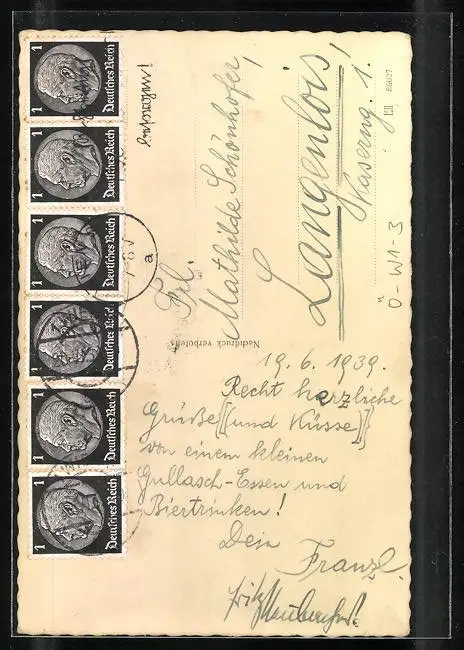 1 Deutsches Reich
1 Deutsches Reich
1 Deutsches Reich
1 Deutsches Reich
1 Deutsches Reich
1 Deutsches Reich
a
Frl.
Mathilde Schönhofer,
Langenlois!
Kaserng. 1.
Nachdruck verboten
Ö-W1-3
19. 6. 1939.
Recht herzliche
Grüße [(und Küsse)]
von einem kleinen
Gullasch-Essen und
Biertrinken!
Dein
Franzl.
Fritz